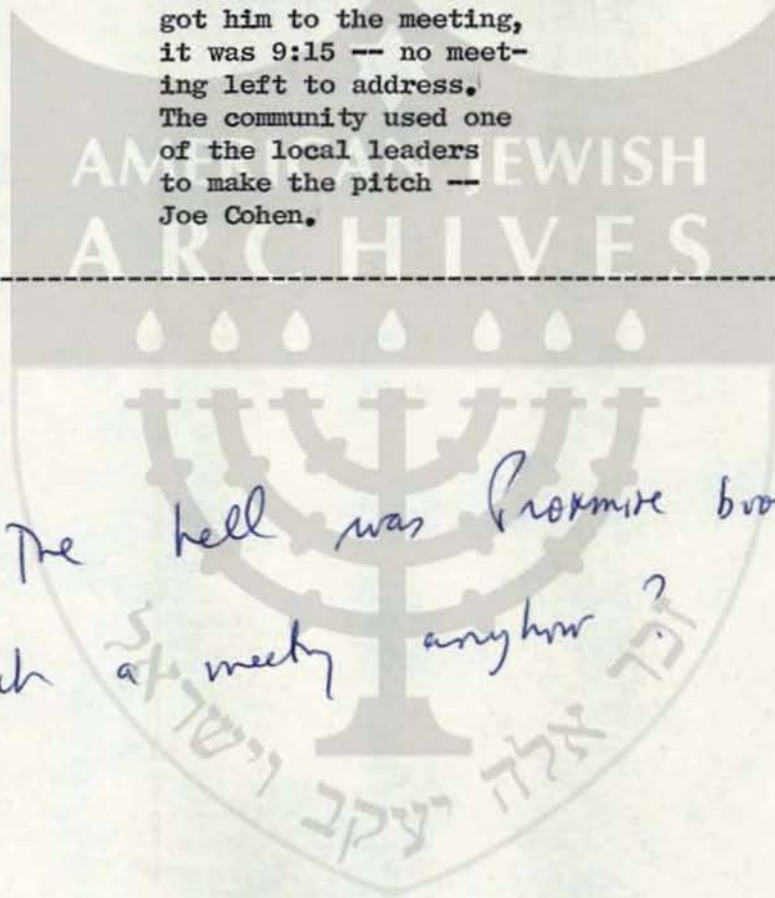 got him to the meeting,
it was 9:15 -- no meet-
ing left to address.
The community used one
of the local leaders
to make the pitch --
Joe Cohen.
AMERICAN JEWISH
ARCHIVES
The hell was Proxmire
a meeting anyhow?
זכר אלה יעקב וישראל